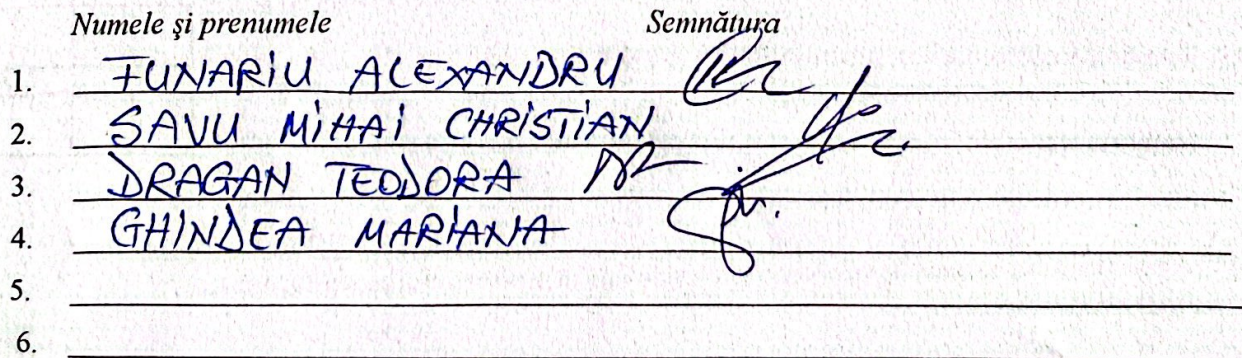 Numele şi prenumele Semnătura
1. FUNARiU ALEXANDRU
2. SAVU MiHAi CHRiSTiAN
3. DRAGAN TEODORA
4. GHiNDEA MARiANA
5.
6.